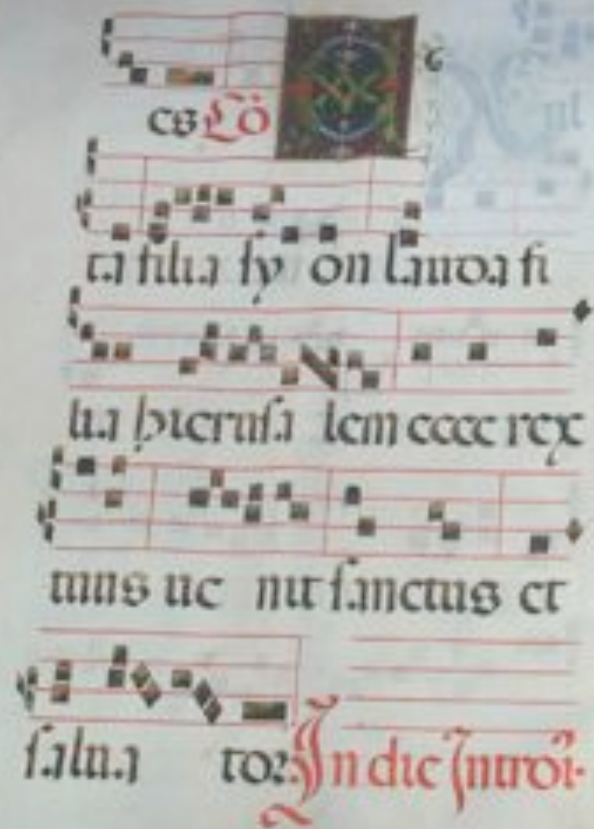 es Cō
E
ta filia sy on lauda fi
lia hierusa lem ecce rex
tuus ue nit sanctus et
salua tor. In die Introi.